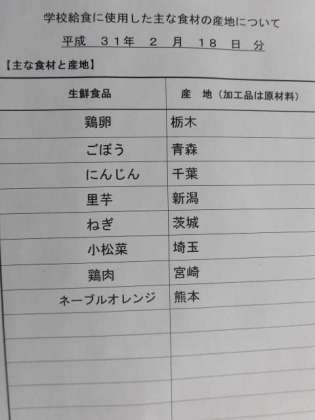 学校給食に使用した主な食材の産地について
平成 31年 2 月 18 日 分
【主な食材と産地】
生鮮食品 産 地（加工品は原材料）
鶏卵 栃木
ごぼう 青森
にんじん 千葉
里芋 新潟
ねぎ 茨城
小松菜 埼玉
鶏肉 宮崎
ネーブルオレンジ 熊本